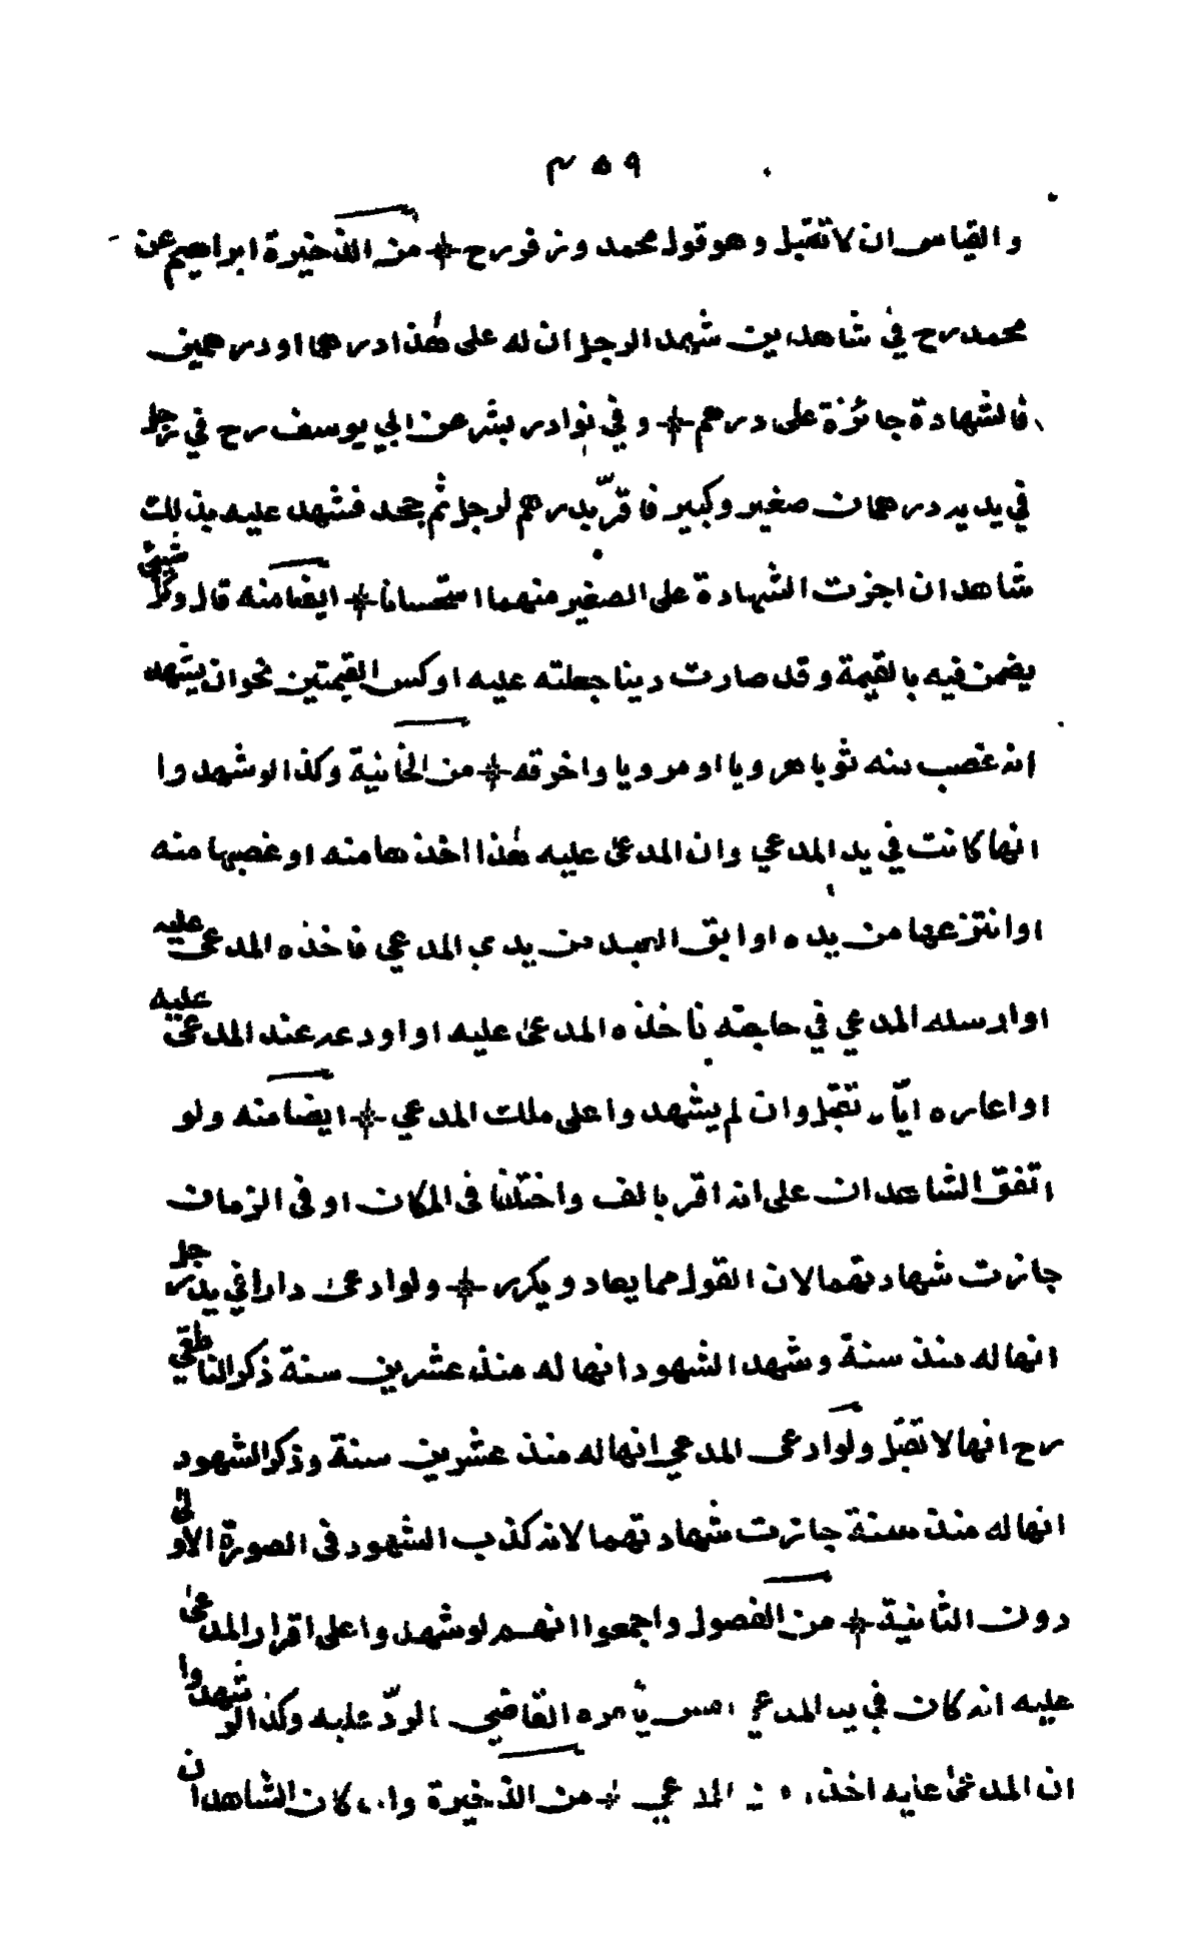 ٣٥٩
والقياس ان لا تقبل وهو قول محمد وزفر رح * من الذخيرة ابراهيم عن
محمد رح في شاهدين شهدا لرجل ان له على هٰذا درهما او درهمين
فالشهادة جائزة على درهم * وفي نوادر بشر عن ابي يوسف رح في رجل
في يديه درهمان صغير وكبير فاقرّ بدرهم لرجل ثم جحد فشهد عليه بذلك
شاهدان اجزت الشهادة على الصغير منهما استحسانا * ايضا منه قال وكل شيئ
يضمن فيه بالقيمة وقد صارت دينا جعلته عليه اوكس القيمتين نحو ان يشهد
انه غصب منه ثوبا هرويا او مرويا واخرقه * من الخانية وكذا لو شهدوا
انها كانت في يد المدعي وان المدعى عليه هٰذا اخذها منه او غصبها منه
او انتزعها من يده او ابق العبد من يدي المدعي فاخذه المدعى عليه
او ارسله المدعي في حاجته فاخذه المدعى عليه او اودعه عند المدعى عليه
او اعاره ايّاه تقبل وان لم يشهدوا على ملك المدعي * ايضا منه ولو
اتفق الشاهدان على انه اقر بالف واختلفا فى المكان او فى الزمان
جازت شهادتهما لان القول مما يعاد ويكرر * ولو ادعى دارا في يد رجل
انها له منذ سنة وشهد الشهود انها له منذ عشرين سنة ذكر الناطقي
رح انها لا تقبل ولو ادعى المدعي انها له منذ عشرين سنة وذكر الشهود
انها له منذ سنة جازت شهادتهما لانه كذب الشهود فى الصورة الاولى
دون الثانية * من الفصول واجمعوا انهم لو شهدوا على اقرار المدعى
عليه انه كان في يد المدعي امس يأمره القاضي بالردّ عليه وكذا لو شهدوا
ان المدعى عليه اخذه من المدعي * من الذخيرة وان كان الشاهدان